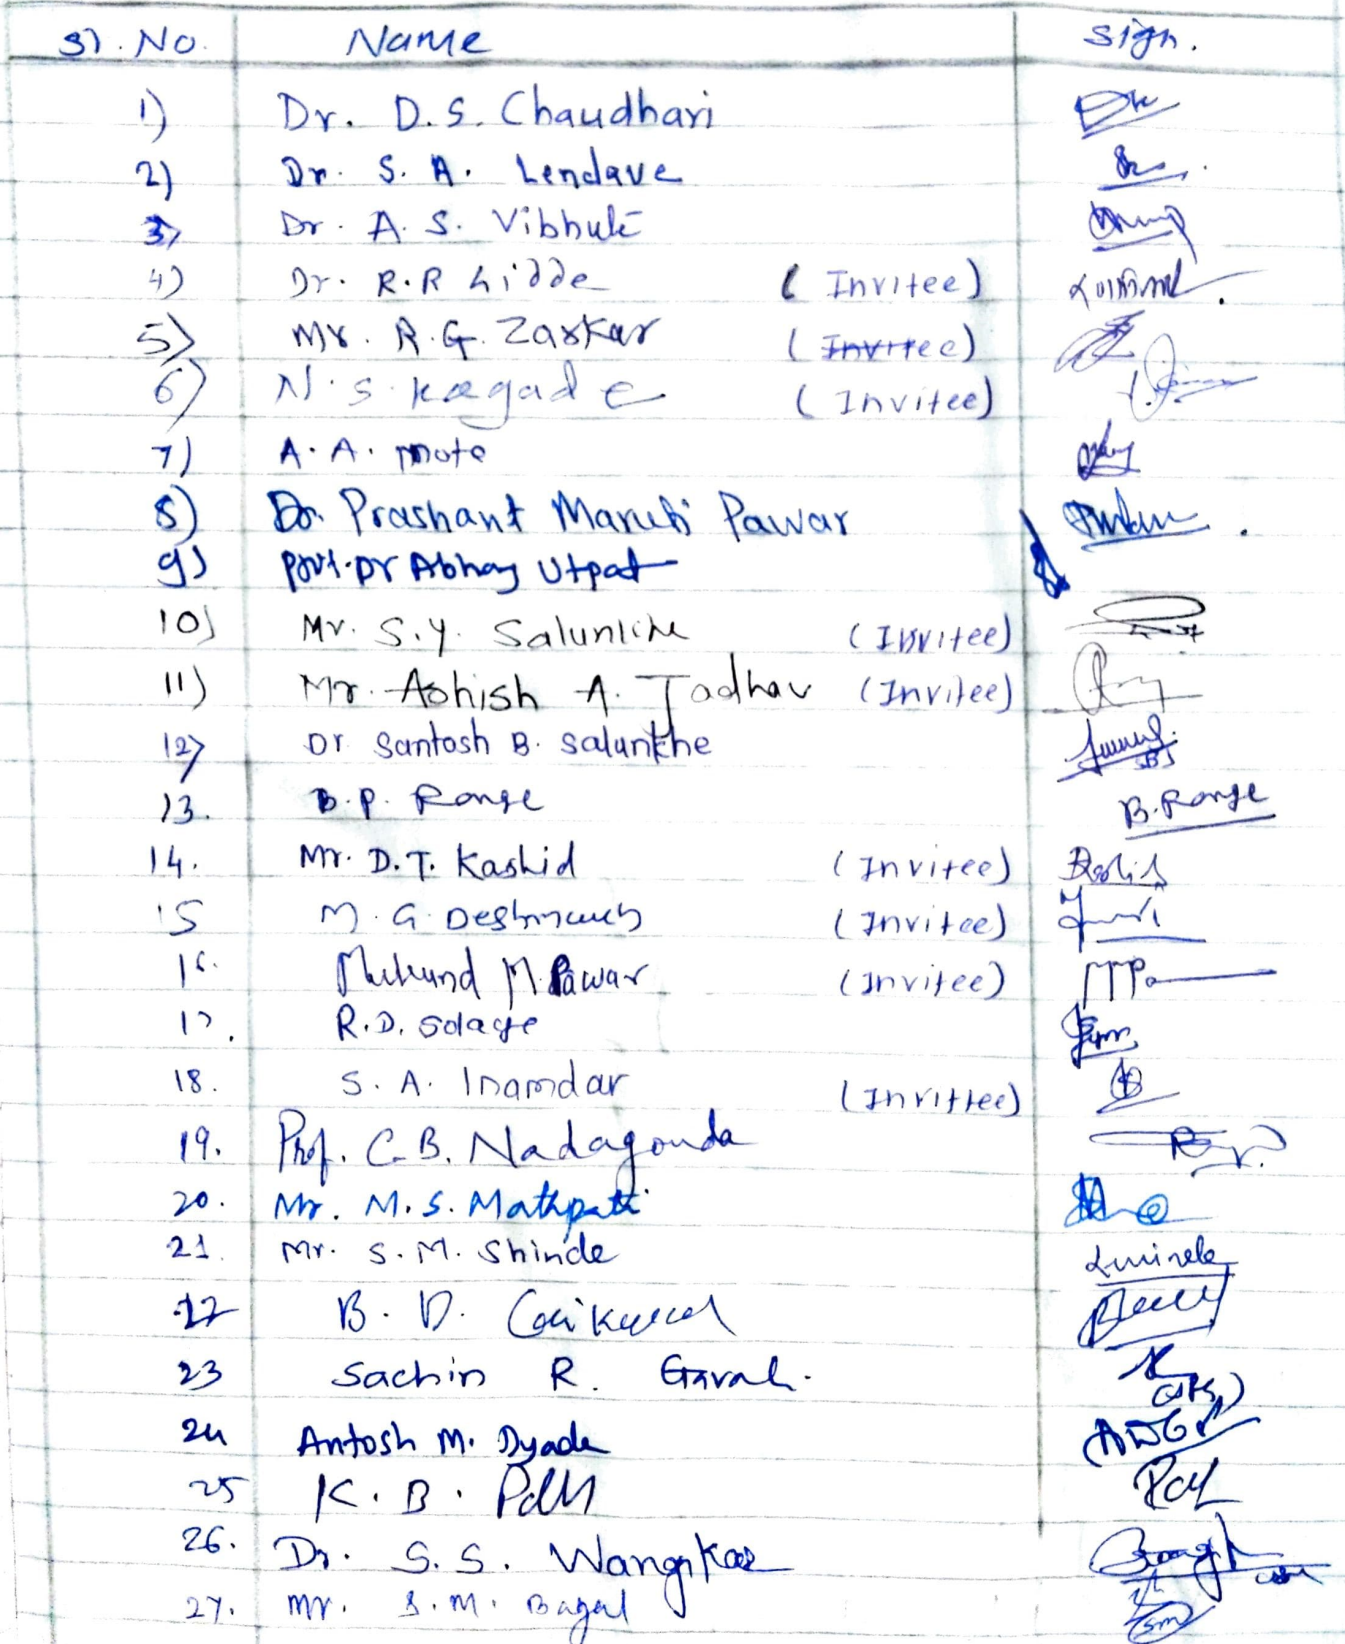 Sl. No. Name Sign.
1) Dr. D.S. Chaudhari
2) Dr. S. A. Lendave
3) Dr. A. S. Vibhute
4) Dr. R.R Gidde (Invitee)
5) Mr. R.G. Zarkar (Invitee)
6) N.S. Kagade (Invitee)
7) A.A. Mote
8) Dr. Prashant Maruti Pawar
9) Dr Abhay Utpat
10) Mr. S.Y. Salunkhe (Invitee)
11) Mr. Ashish A. Jadhav (Invitee)
12) Dr Santosh B. Salunkhe
13. B.P. Ronge B.Ronge
14. Mr. D.T. Kashid (Invitee)
15 M.G. Deshmukh (Invitee)
16. Mukund M. Pawar (Invitee)
17. R.D. Solage
18. S.A. Inamdar (Invittee)
19. Prof. C.B. Nadagouda
20. Mr. M.S. Mathpati
21. Mr. S.M. Shinde
22 B.D. Gaikwad
23 Sachin R. Gavali.
24 Antosh M. Dyade
25 K.B. Patil
26. Dr. S.S. Wangikar
27. Mr. S.M. Bagal